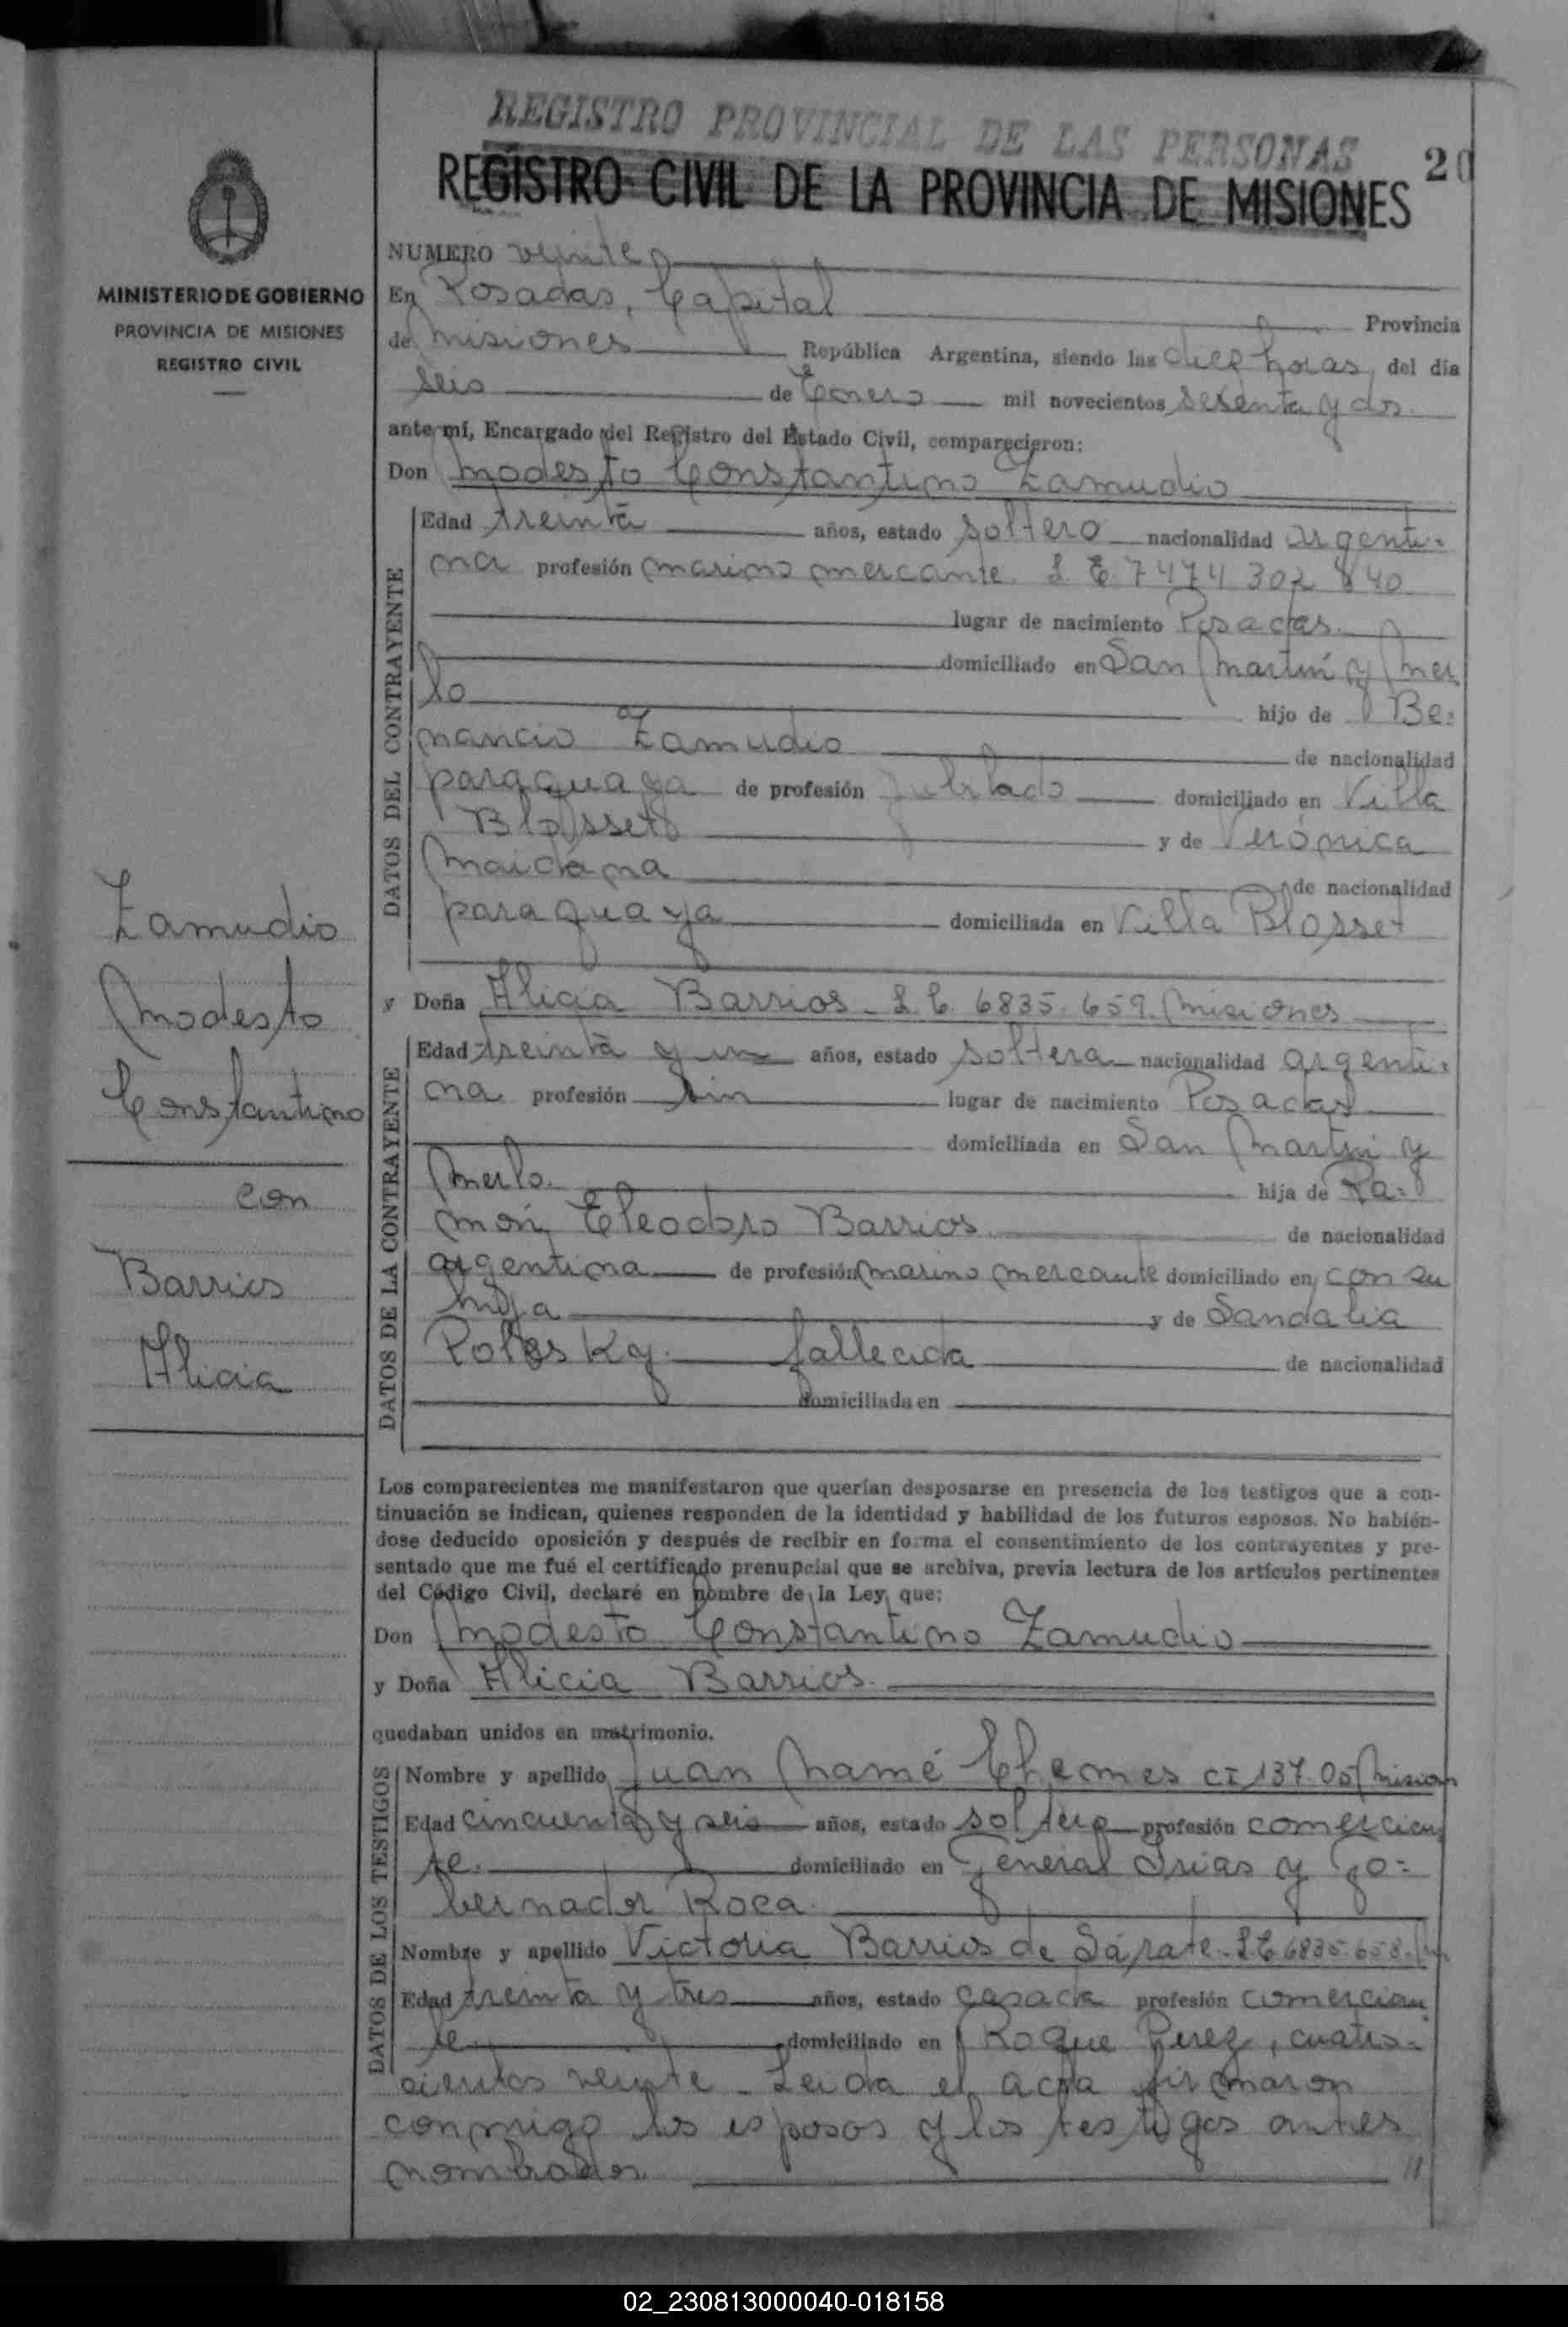 REGISTRO PROVINCIAL DE LAS PERSONAS
REGISTRO CIVIL DE LA PROVINCIA DE MISIONES
20
MINISTERIO DE GOBIERNO
PROVINCIA DE MISIONES
REGISTRO CIVIL
Zamudio
Modesto
Constantino
con
Barrios
Alicia
NUMERO veinte
En Posadas, Capital Provincia
de Misiones República Argentina, siendo las diez horas, del día
seis de Enero mil novecientos sesenta y dos.
ante mí, Encargado del Registro del Estado Civil, comparecieron:
Don Modesto Constantino Zamudio
DATOS DEL CONTRAYENTE
Edad treinta años, estado soltero nacionalidad argenti=
na profesión marino mercante. L E. 7474 302
lugar de nacimiento Posadas.
domiciliado en San Martin y Mer
lo hijo de Be=
nancio Zamudio de nacionalidad
paraguaya de profesión jubilado domiciliado en Villa
Blosset y de Verónica
Maidana de nacionalidad
paraguaya domiciliada en Villa Blosset
y Doña Alicia Barrios - L. C. 6835.659. Misiones
DATOS DE LA CONTRAYENTE
Edad treinta y un años, estado soltera nacionalidad argenti=
na profesión sin lugar de nacimiento Posadas
domiciliada en San Martin y
Merlo. hija de Ra=
món Eleodoro Barrios de nacionalidad
argentina de profesión marino mercante domiciliado en con su
hija y de Sandalia
fallecida de nacionalidad
domiciliada en
Los comparecientes me manifestaron que querían desposarse en presencia de los testigos que a con-
tinuación se indican, quienes responden de la identidad y habilidad de los futuros esposos. No habién-
dose deducido oposición y después de recibir en forma el consentimiento de los contrayentes y pre-
sentado que me fué el certificado prenupcial que se archiva, previa lectura de los artículos pertinentes
del Código Civil, declaré en nombre de la Ley que:
Don Modesto Constantino Zamudio
y Doña Alicia Barrios.
quedaban unidos en matrimonio.
DATOS DE LOS TESTIGOS
Nombre y apellido Juan Mamé Chemes CI 137.05
Edad cincuenta y seis años, estado soltero profesión comercian
te. domiciliado en General Frias y Go=
bernador Roca.
Nombre y apellido Victoria Barrios de Sárate - L C 6835.658.
Edad treinta y tres años, estado casada profesión comercian
te. domiciliado en Roque Perez, cuatro=
cientos veinte - Leida el acta firmaron
conmigo los esposos y los testigos antes
nombrados
02_230813000040-018158